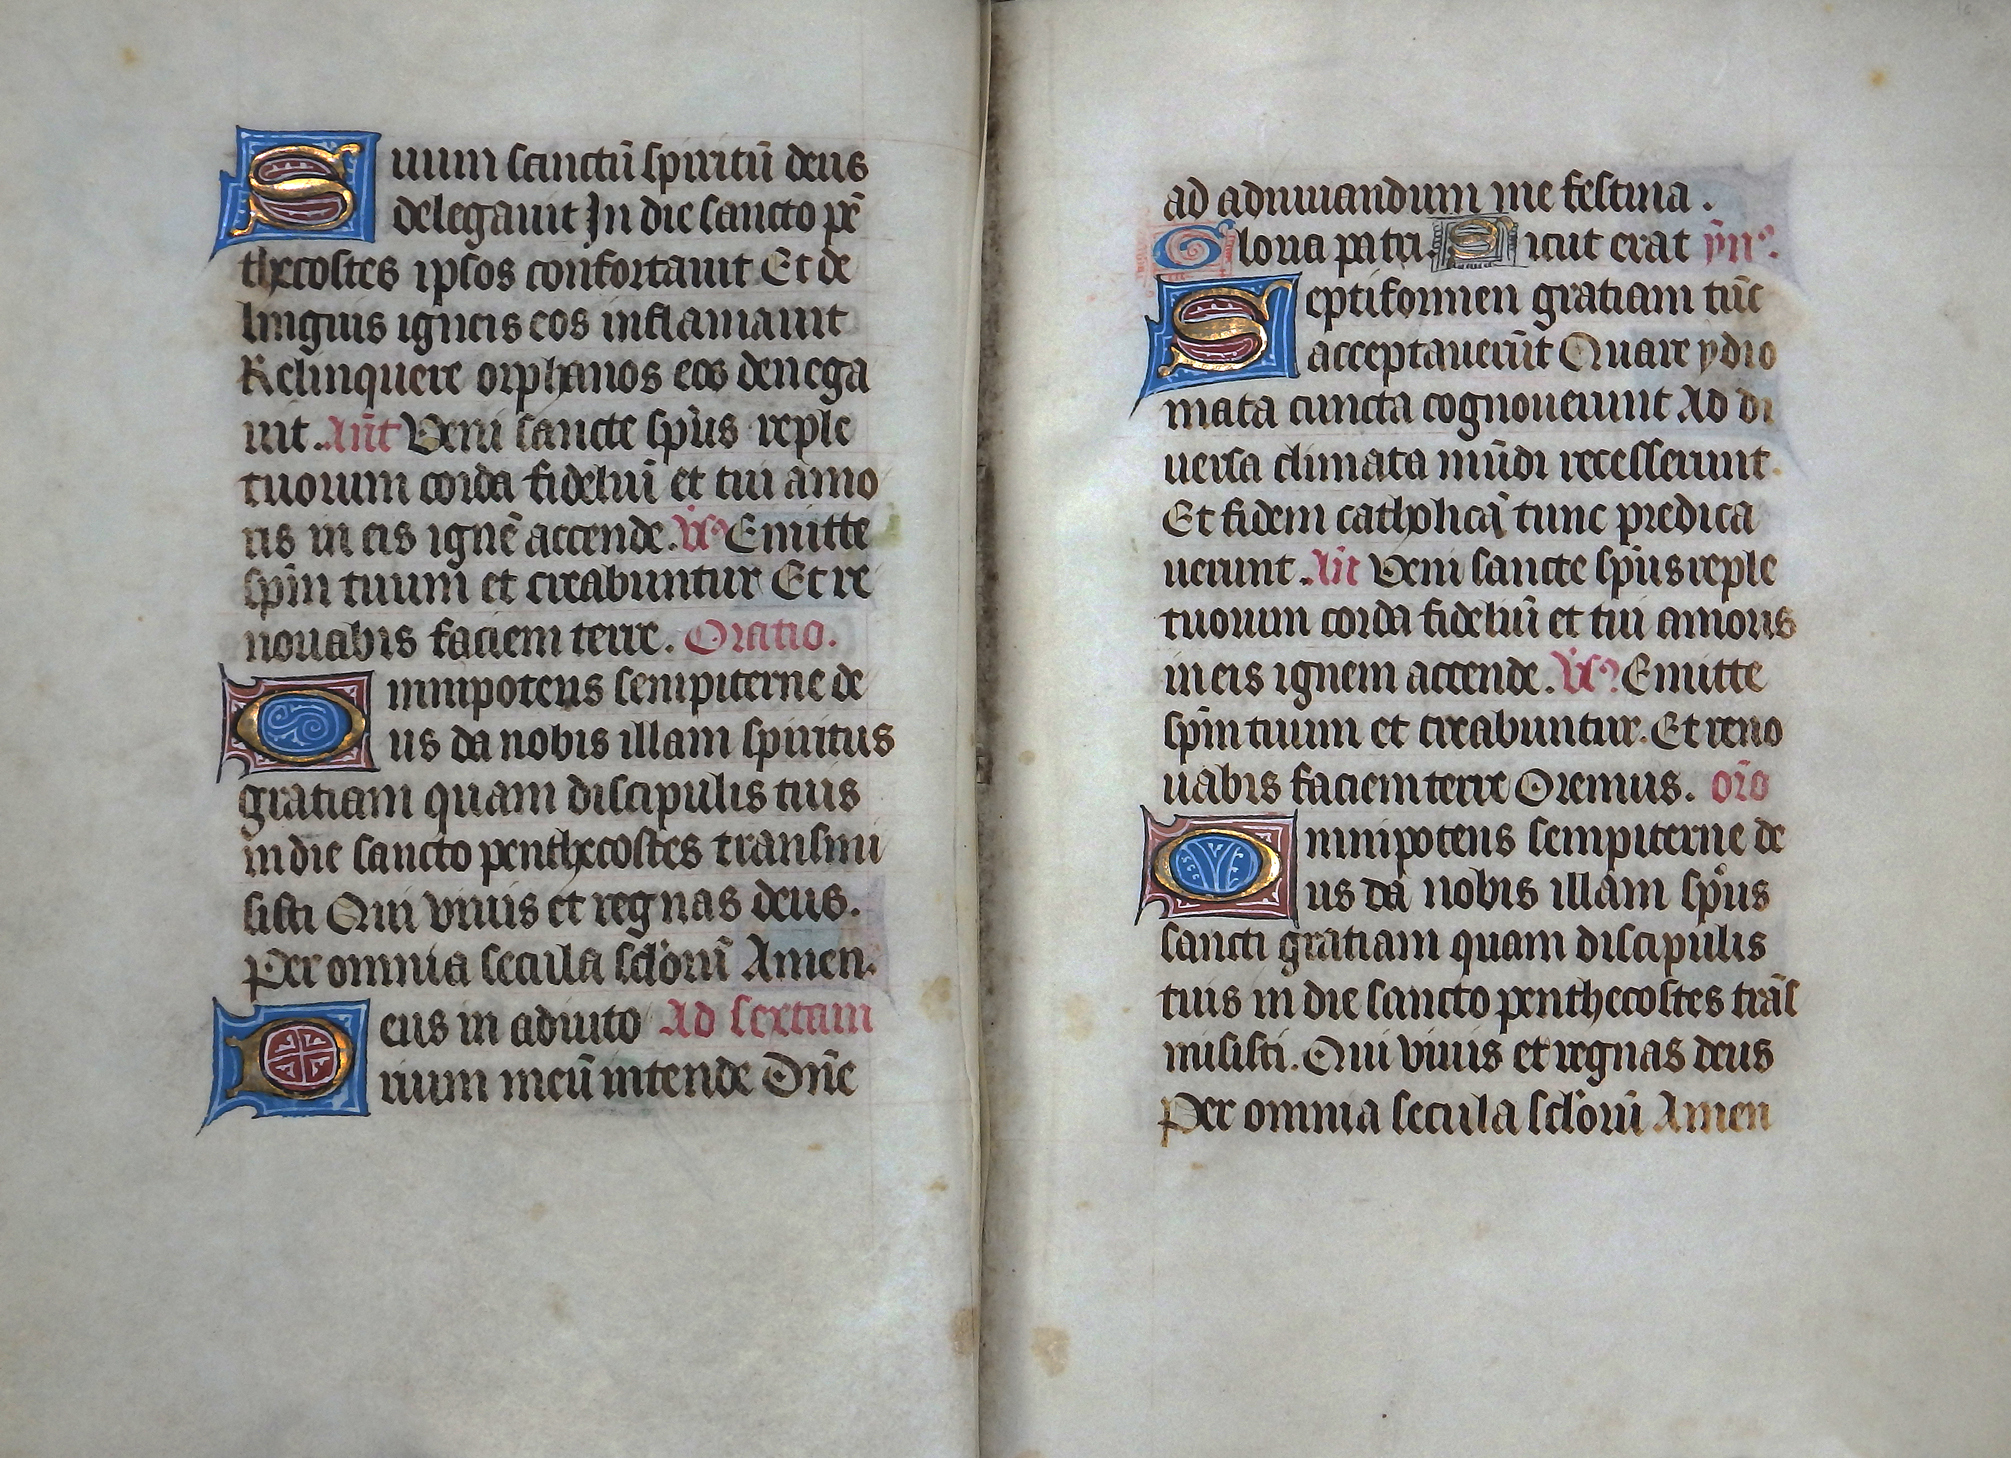 Suum sanctū spiritū deus
delegauit In die sancto pē
thecostes ipsos confortauit Et de
linguis igneis eos inflamauit
Relinquere orphanos eos denega
uit. Añt Veni sancte spūs reple
tuorum corda fideliū et tui amo
ris in eis ignē accende. V̄s Emitte
spm̄ tuum et creabuntur Et re
nouabis faciem terre. Oratio.
Omnipotens sempiterne de
us da nobis illam spiritus
gratiam quam discipulis tuis
in die sancto penthecostes transmi
sisti Qui viuis et regnas deus.
Per omnia secula sclōrū Amen.
Deus in adiuto Ad sextam
rium meū intende Dn̄e
ad adiuuandum me festina.
Gloria patri. Sicut erat ym̄s.
Septiformen gratiam tūc
acceptauerūt Quare ydio
mata cuncta cognouerunt Ad di
uersa climata mūdi recesserunt.
Et fidem catholicā tunc predica
uerunt. Añt Veni sancte spūs reple
tuorum corda fideliū et tui amoris
in eis ignem accende. V̄s Emitte
spm̄ tuum et creabuntur. Et reno
uabis faciem terre Oremus. orō
Omnipotens sempiterne de
us da nobis illam spūs
sancti gratiam quam discipulis
tuis in die sancto penthecostes trās
misisti. Qui viuis et regnas deus
Per omnia secula sclōrū Amen